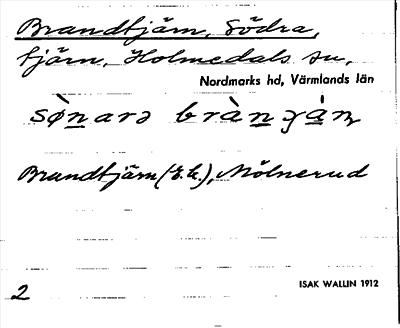 Brandtjärn, Södra,
tjärn, Holmedals sn,
Nordmarks hd, Värmlands län
Brandtjärn (E.k.), Mölnerud
2
ISAK WALLIN 1912